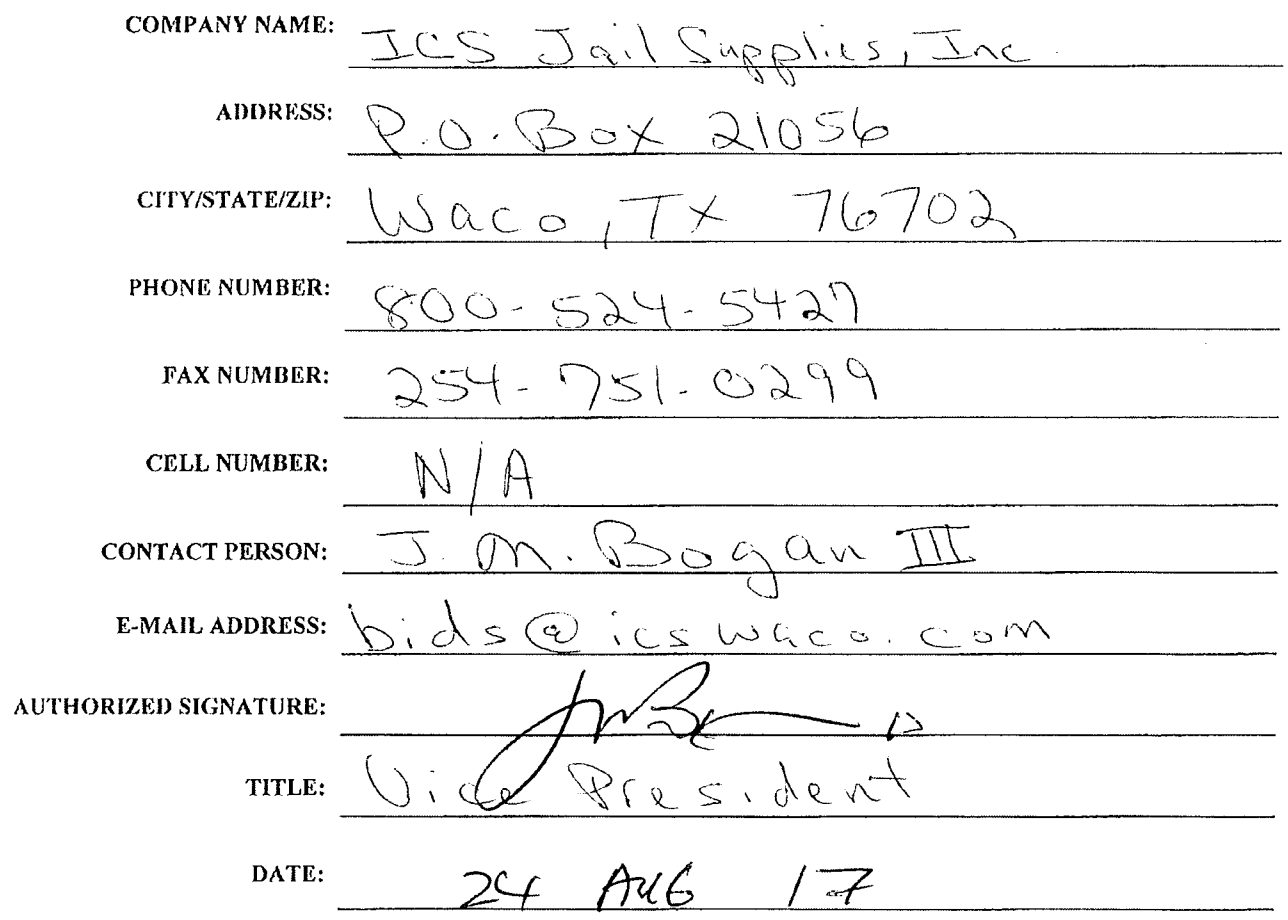 COMPANY NAME: ICS Jail Supplies, Inc.
ADDRESS: P.O. Box 21056
CITY/STATE/ZIP: Waco, TX 76702
PHONE NUMBER: 800-524-5427
FAX NUMBER: 254-751-0299
CELL NUMBER: N/A
CONTACT PERSON: J. M. Bogan III
E-MAIL ADDRESS: bids@icswaco.com
AUTHORIZED SIGNATURE:
TITLE: Vice President
DATE: 24 AUG 17